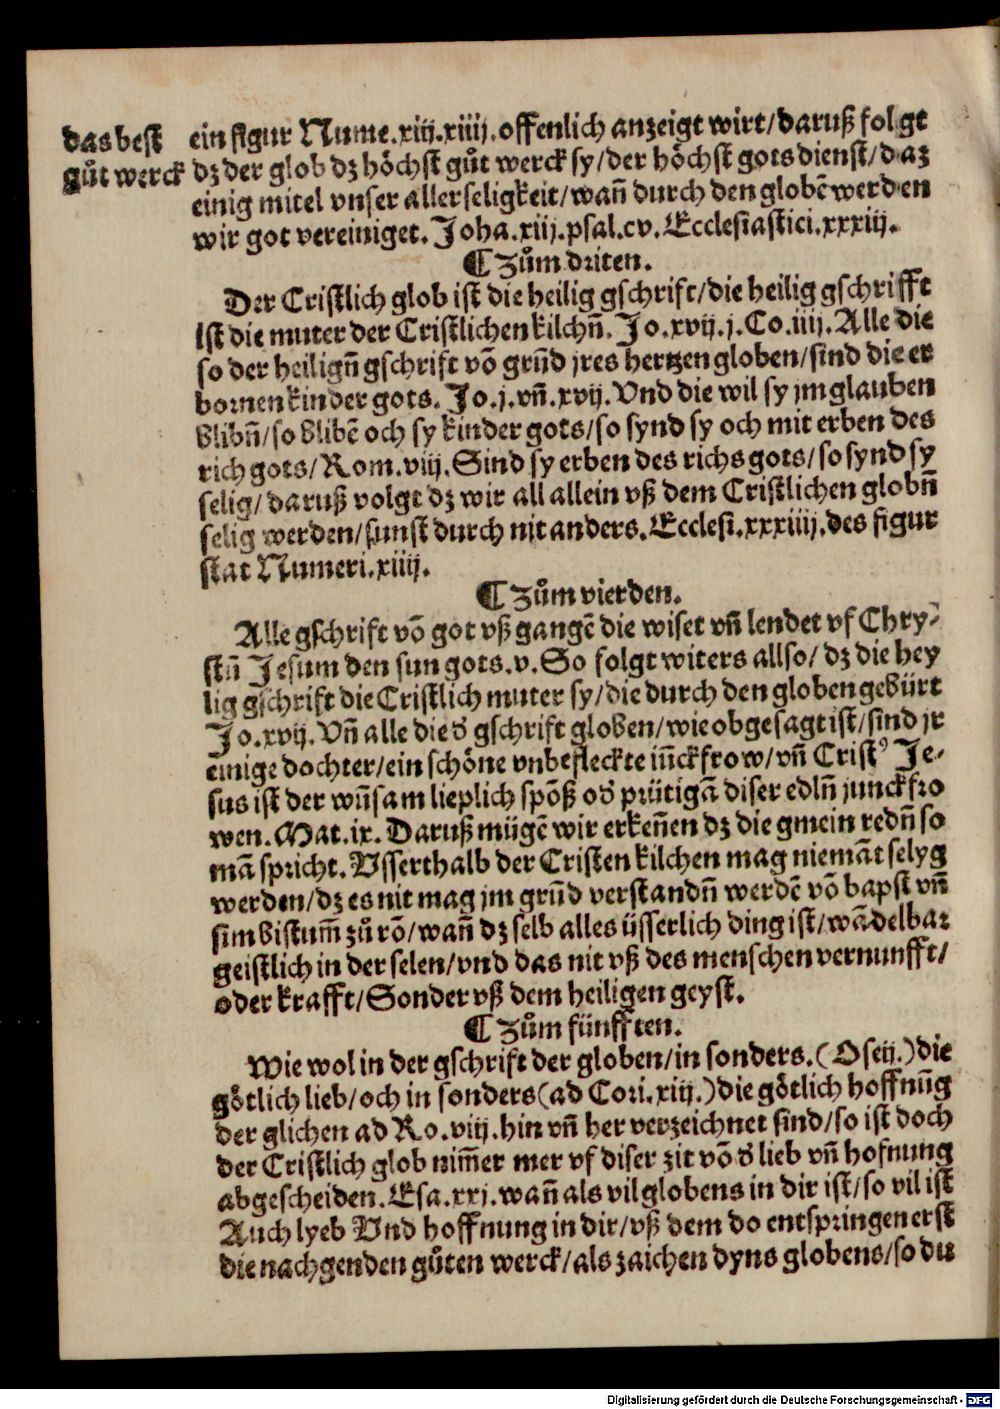 das best
gůt werck
ein figur Nume.xiij.xiiij.offenlich anzeigt wirt/daruß folgt
dz der glob dz höchst gůt werck sy/der höchst gotsdienst/daz
einig mitel vnser aller seligkeit/wañ durch den globẽ werden
wir got vereiniget. Joha.xiij.psal.cv.Ecclesiastici.xxxiij.
¶ Zům driten.
Der Cristlich glob ist die heilig gschrift/die heilig gschrifft
ist die muter der Cristlichen kilchñ. Jo.xvij.j.Co.iiij.Alle die
so der heiligñ gschrift võ grũd jres hertzen globen/sind die er
bornen kinder gots. Jo.j.vñ.xvij.Vnd die wil sy jm glauben
blibñ/so blibẽ och sy kinder gots/so synd sy och mit erben des
rich gots/Rom.viij.Sind sy erben des richs gots/so synd sy
selig/daruß volgt dz wir all allein vß dem Cristlichen globñ
selig werden/sunst durch nit anders.Ecclesi.xxxiiij.des figur
stat Numeri.xiiij.
¶ Zům vierden.
Alle gschrift võ got vßgangẽ die wiset vñ lendet vf Chry-
stñ Jesum den sun gots.v.So folgt witers allso/dz die hey
lig gschrift die Cristlich muter sy/die durch den globen gebürt
Jo.xvij.Vñ alle die d' gschrift globen/wie obgesagt ist/sind jr
einige dochter/ein schöne vnbefleckte iũckfrow/vñ Crist⁹ Je-
sus ist der wũsam lieplich spõß od' prütigã diser edlñ junckfro
wen.Mat.ix.Daruß mügẽ wir erkeñen dz die gmein redñ so
mã spricht.Vsserthalb der Cristen kilchen mag niemãt selyg
werden/dz es nit mag jm grũd verstandñ werdẽ võ bapst vñ
sim bistum̃ zů rõ/wañ dz selb alles üsserlich ding ist/wãdelbar
geistlich in der selen/vnd das nit vß des menschen vernunfft/
oder krafft/Sonder vß dem heiligen geyst.
¶ Zům fünfften.
Wie wol in der gschrift der globen/in sonders.(Oseij.)die
götlich lieb/och in sonders(ad Cori.xiij.)die götlich hoffnũg
der glichen ad Ro.viij.hin vñ her verzeichnet sind/so ist doch
der Cristlich glob nim̃er mer vf diser zit võ d' lieb vñ hofnung
abgescheiden.Esa.xxj.wañ als vil globens in dir ist/so vil ist
Auch lyeb Vnd hoffnung in dir/vß dem do entspringen erst
die nachgenden gůten werck/als zaichen dyns globens/so du
Digitalisierung gefördert durch die Deutsche Forschungsgemeinschaft - DFG